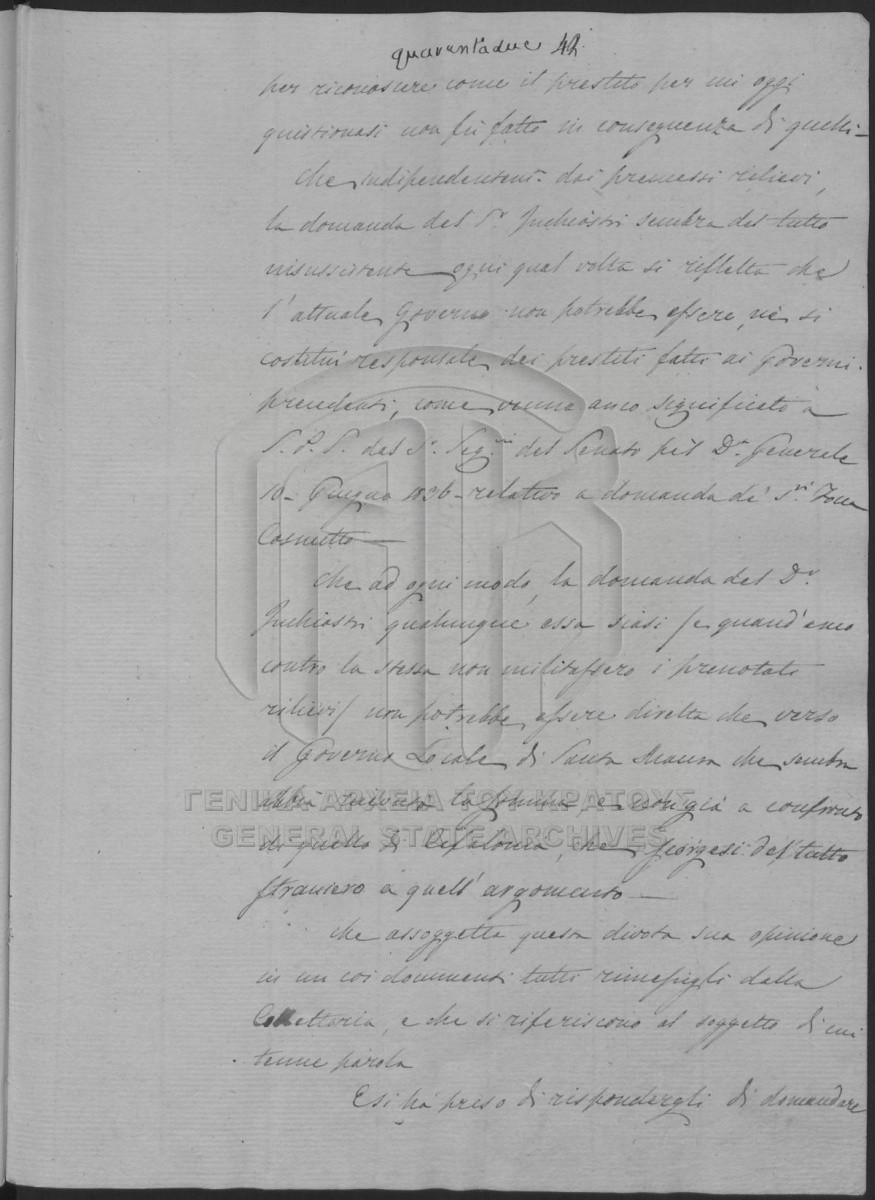 quarantadue 42
per riconoscere come il prestito per cui oggi
quistionasi non fu fatto in conseguenza di quelli –
che indipendentem. dai premessi rilievi,
la domanda del Sr. Inchiostri sembra del tutto
insussistente ogni qual volta si rifletta che
l'attuale Governo non potrebbe essere, nè si
costituì responsale dei prestiti fatti ai Governi
precedenti, come venne anco significato a
S. P. S. dal Sr. Segrio. del Senato pel Dr. Generale
10 – Giugno 1836 – relativo a domanda de' Sri.
Cosmetto —
che ad ogni modo, la domanda del Dr.
Inchiostri qualunque essa siasi / e quand'anco
contro la stessa non militassero i prenotati
rilievi / non potrebbe essere diretta che verso
il Governo Locale di Santa Maura che sembra
abbia ricevuto la somma, e non già a confronto
di quello di Cefalonia, che scorgesi del tutto
straniero a quell'argomento —
che assoggetta questa divota sua opinione
in un coi documenti tutti rimessigli dalla
Collettoria, e che si riferiscono al soggetto di cui
tenne parola
E si ha preso di rispondergli di domandare
ΓΕΝΙΚΑ ΑΡΧΕΙΑ ΤΟΥ ΚΡΑΤΟΥΣ
GENERAL STATE ARCHIVES